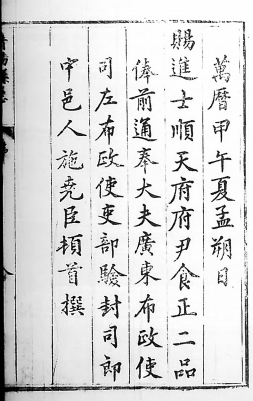 萬曆甲午夏孟朔日
賜進士順天府府尹食正二品
俸前通奉大夫廣東布政使
司左布政使吏部驗封司郎
中邑人施堯臣頓首撰